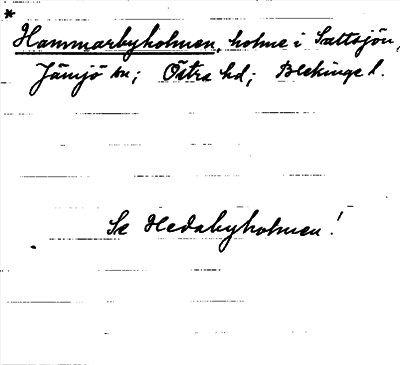 *
Hammarbyholmen, holme i Saltsjön,
Jämjö sn; Östra hd; Blekinge l.
Se Hedabyholmen!